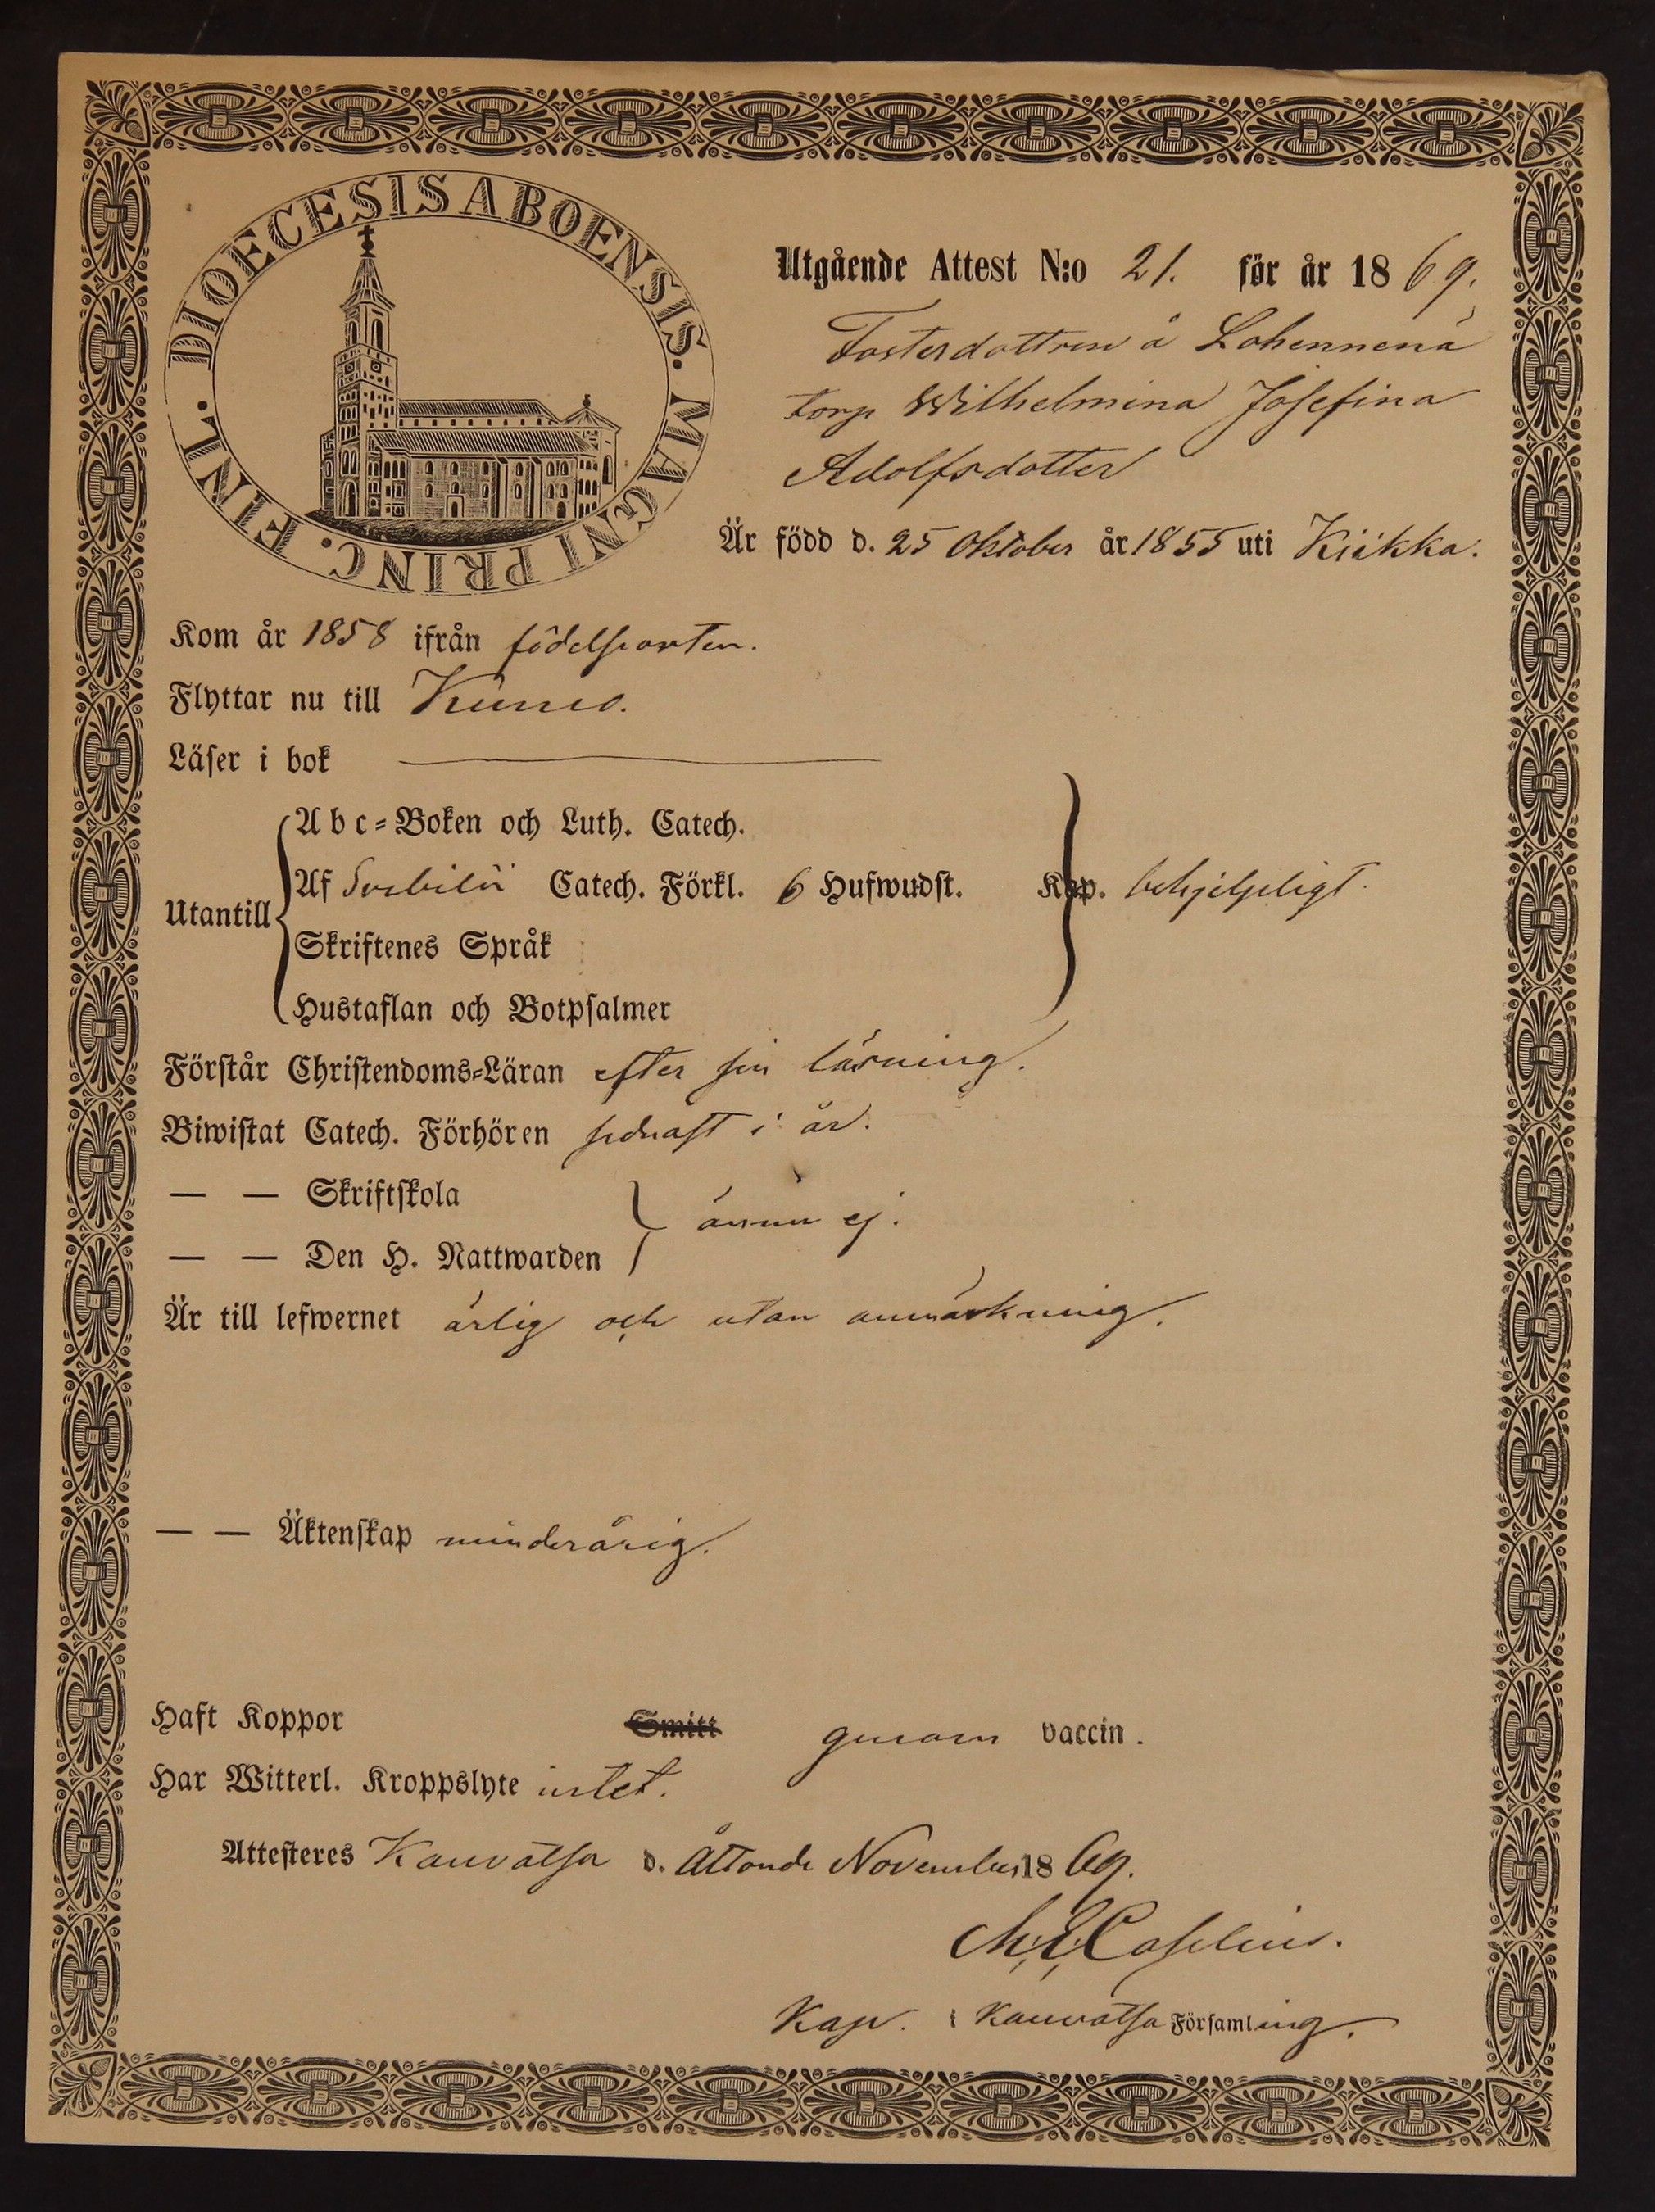 DIOECESIS ABOENSIS. MAGNI PRINC. FINL.
Utgående Attest N:o 21. för år 1869.
Fosterdottren å Lohennenä
torp Wilhelmina Josefina
Adolfsdotter
Är född d. 25 Oktober år 1855 uti Kiikka.
Kom år 1858 ifrån födelseorten.
Flyttar nu till Kumo.
Läser i bok
Abc-Boken och Luth. Catech.
Utantill Af Svebilii Catech. Förkl. 6 Hufwudst. Kap. behjelpligt.
Skriftenes Språk
Hustaflan och Botpsalmer
Förstår Christendoms-Läran efter sin läsning.
Biwistat Catech. Förhören sednast i år.
— — Skriftskola
ännu ej.
— — Den H. Nattwarden
Är till lefwernet ärlig och utan anmärkning.
— — Äktenskap minderårig.
Haft Koppor Smitt genom vaccin.
Har Witterl. Kroppslyte intet.
Attesteres Kauvatsa d. Åttonde November 1869.
Kap. i Kauvatsa Församling.